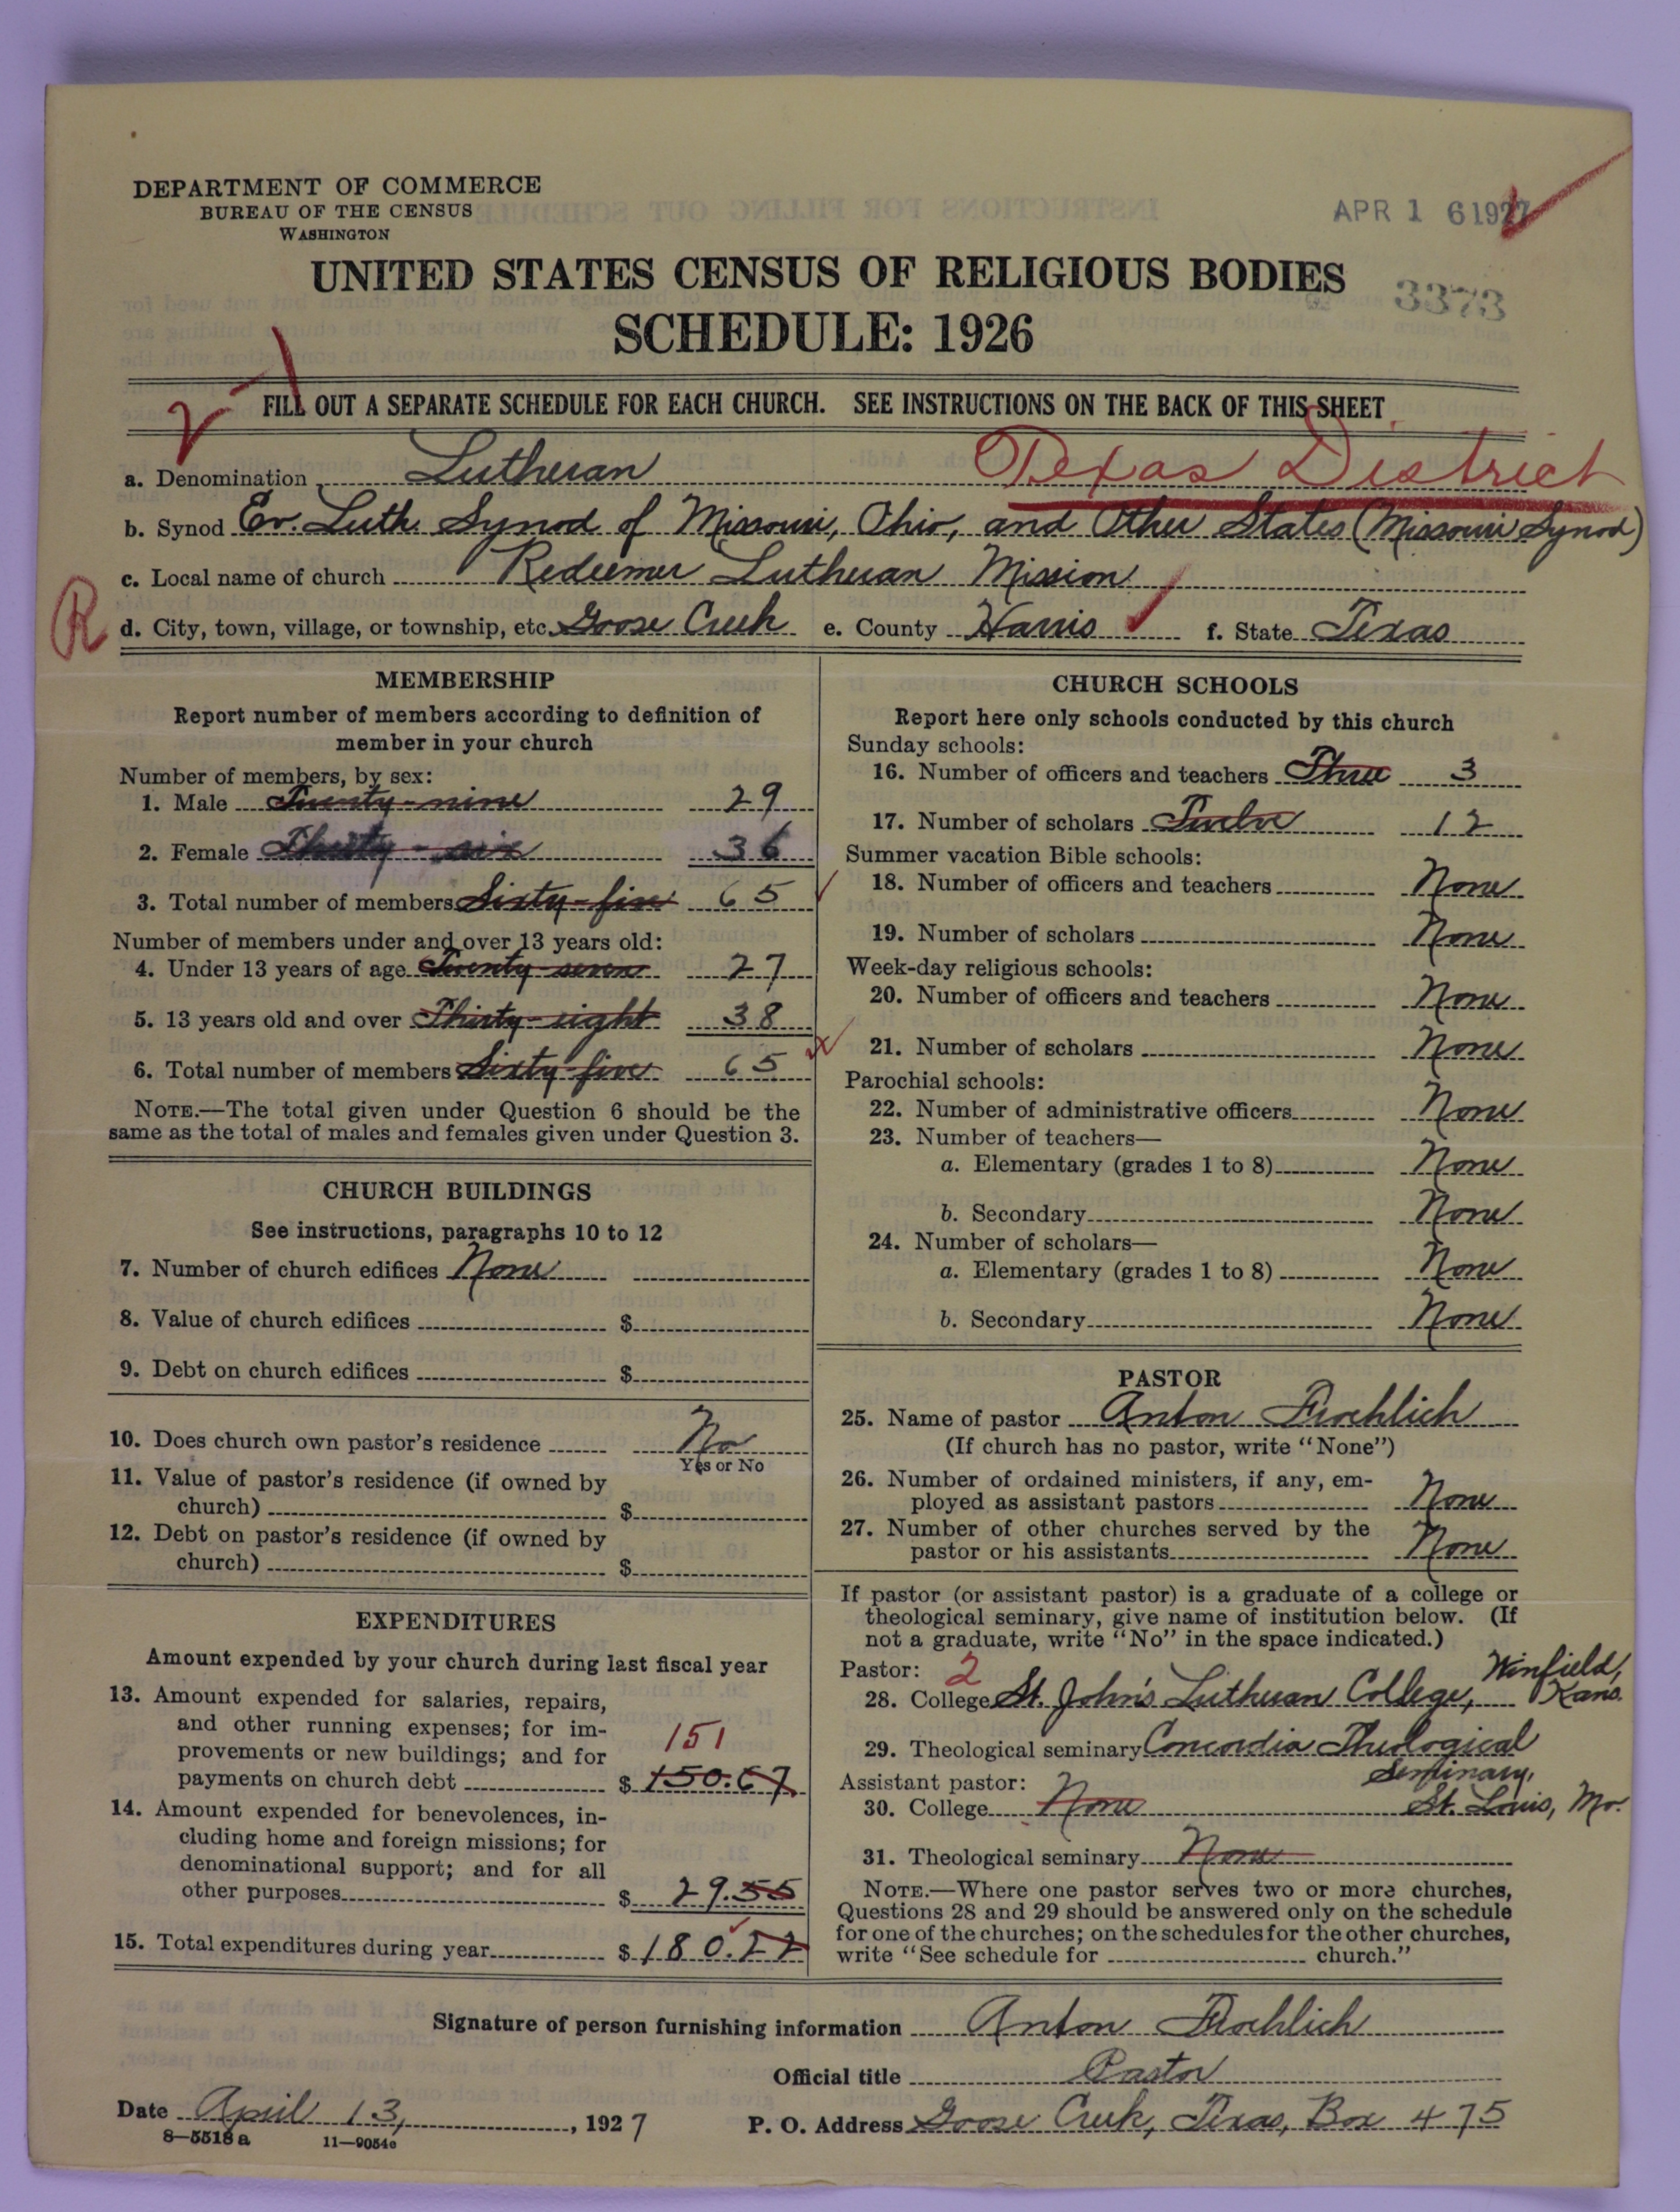 DEPARTMENT OF COMMERCE
BUREAU OF THE CENSUS
WASHINGTON
APR 16 1927
UNITED STATES CENSUS OF RELIGIOUS BODIES
3373
SCHEDULE: 1926
FILL OUT A SEPARATE SCHEDULE FOR EACH CHURCH. SEE INSTRUCTIONS ON THE BACK OF THIS SHEET
a. Denomination Lutheran Texas District
b. Synod Ev. Luth. Synod of Missouri, Ohio, and Other States (Missouri Synod)
c. Local name of church Redeemer Lutheran Mission
R d. City, town, village, or township, etc. Goose Creek e. County Harris f. State Texas
MEMBERSHIP
Report number of members according to definition of
member in your church
Number of members, by sex:
1. Male Twenty-nine 29
2. Female Thirty-six 36
3. Total number of members Sixty-five 65
Number of members under and over 13 years old:
4. Under 13 years of age Twenty-seven 27
5. 13 years old and over Thirty-eight 38
6. Total number of members Sixty-five 65
NOTE.—The total given under Question 6 should be the
same as the total of males and females given under Question 3.
CHURCH BUILDINGS
See instructions, paragraphs 10 to 12
7. Number of church edifices None
8. Value of church edifices $
9. Debt on church edifices $
10. Does church own pastor's residence No
Yes or No
11. Value of pastor's residence (if owned by
church) $
12. Debt on pastor's residence (if owned by
church) $
EXPENDITURES
Amount expended by your church during last fiscal year
13. Amount expended for salaries, repairs,
and other running expenses; for im-
provements or new buildings; and for
151
payments on church debt $ 150.67
14. Amount expended for benevolences, in-
cluding home and foreign missions; for
denominational support; and for all
other purposes $ 29.55
15. Total expenditures during year $ 180.22
CHURCH SCHOOLS
Report here only schools conducted by this church
Sunday schools:
16. Number of officers and teachers Three 3
17. Number of scholars Twelve 12
Summer vacation Bible schools:
18. Number of officers and teachers None
19. Number of scholars None
Week-day religious schools:
20. Number of officers and teachers None
21. Number of scholars None
Parochial schools:
22. Number of administrative officers None
23. Number of teachers—
a. Elementary (grades 1 to 8) None
b. Secondary None
24. Number of scholars—
a. Elementary (grades 1 to 8) None
b. Secondary None
PASTOR
25. Name of pastor Anton Froehlich
(If church has no pastor, write "None")
26. Number of ordained ministers, if any, em-
ployed as assistant pastors None
27. Number of other churches served by the
pastor or his assistants None
If pastor (or assistant pastor) is a graduate of a college or
theological seminary, give name of institution below. (If
not a graduate, write "No" in the space indicated.)
Pastor: 2
28. College St. John's Lutheran College, Winfield, Kans.
29. Theological seminary Concordia Theological
Seminary,
St. Louis, Mo.
Assistant pastor:
30. College None
31. Theological seminary None
NOTE.—Where one pastor serves two or more churches,
Questions 28 and 29 should be answered only on the schedule
for one of the churches; on the schedules for the other churches,
write "See schedule for church."
Signature of person furnishing information Anton Froehlich
Official title Pastor
Date April 13, 1927 P. O. Address Goose Creek, Texas, Box 475
8—5518a 11—9054c